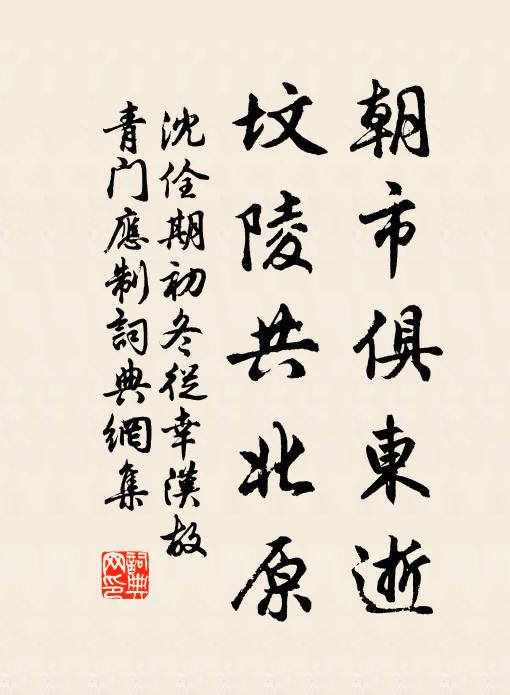 朝市俱東逝
墳陵共北原
沈佺期初冬從幸漢故
青门應制詞典網集
詞典
网印